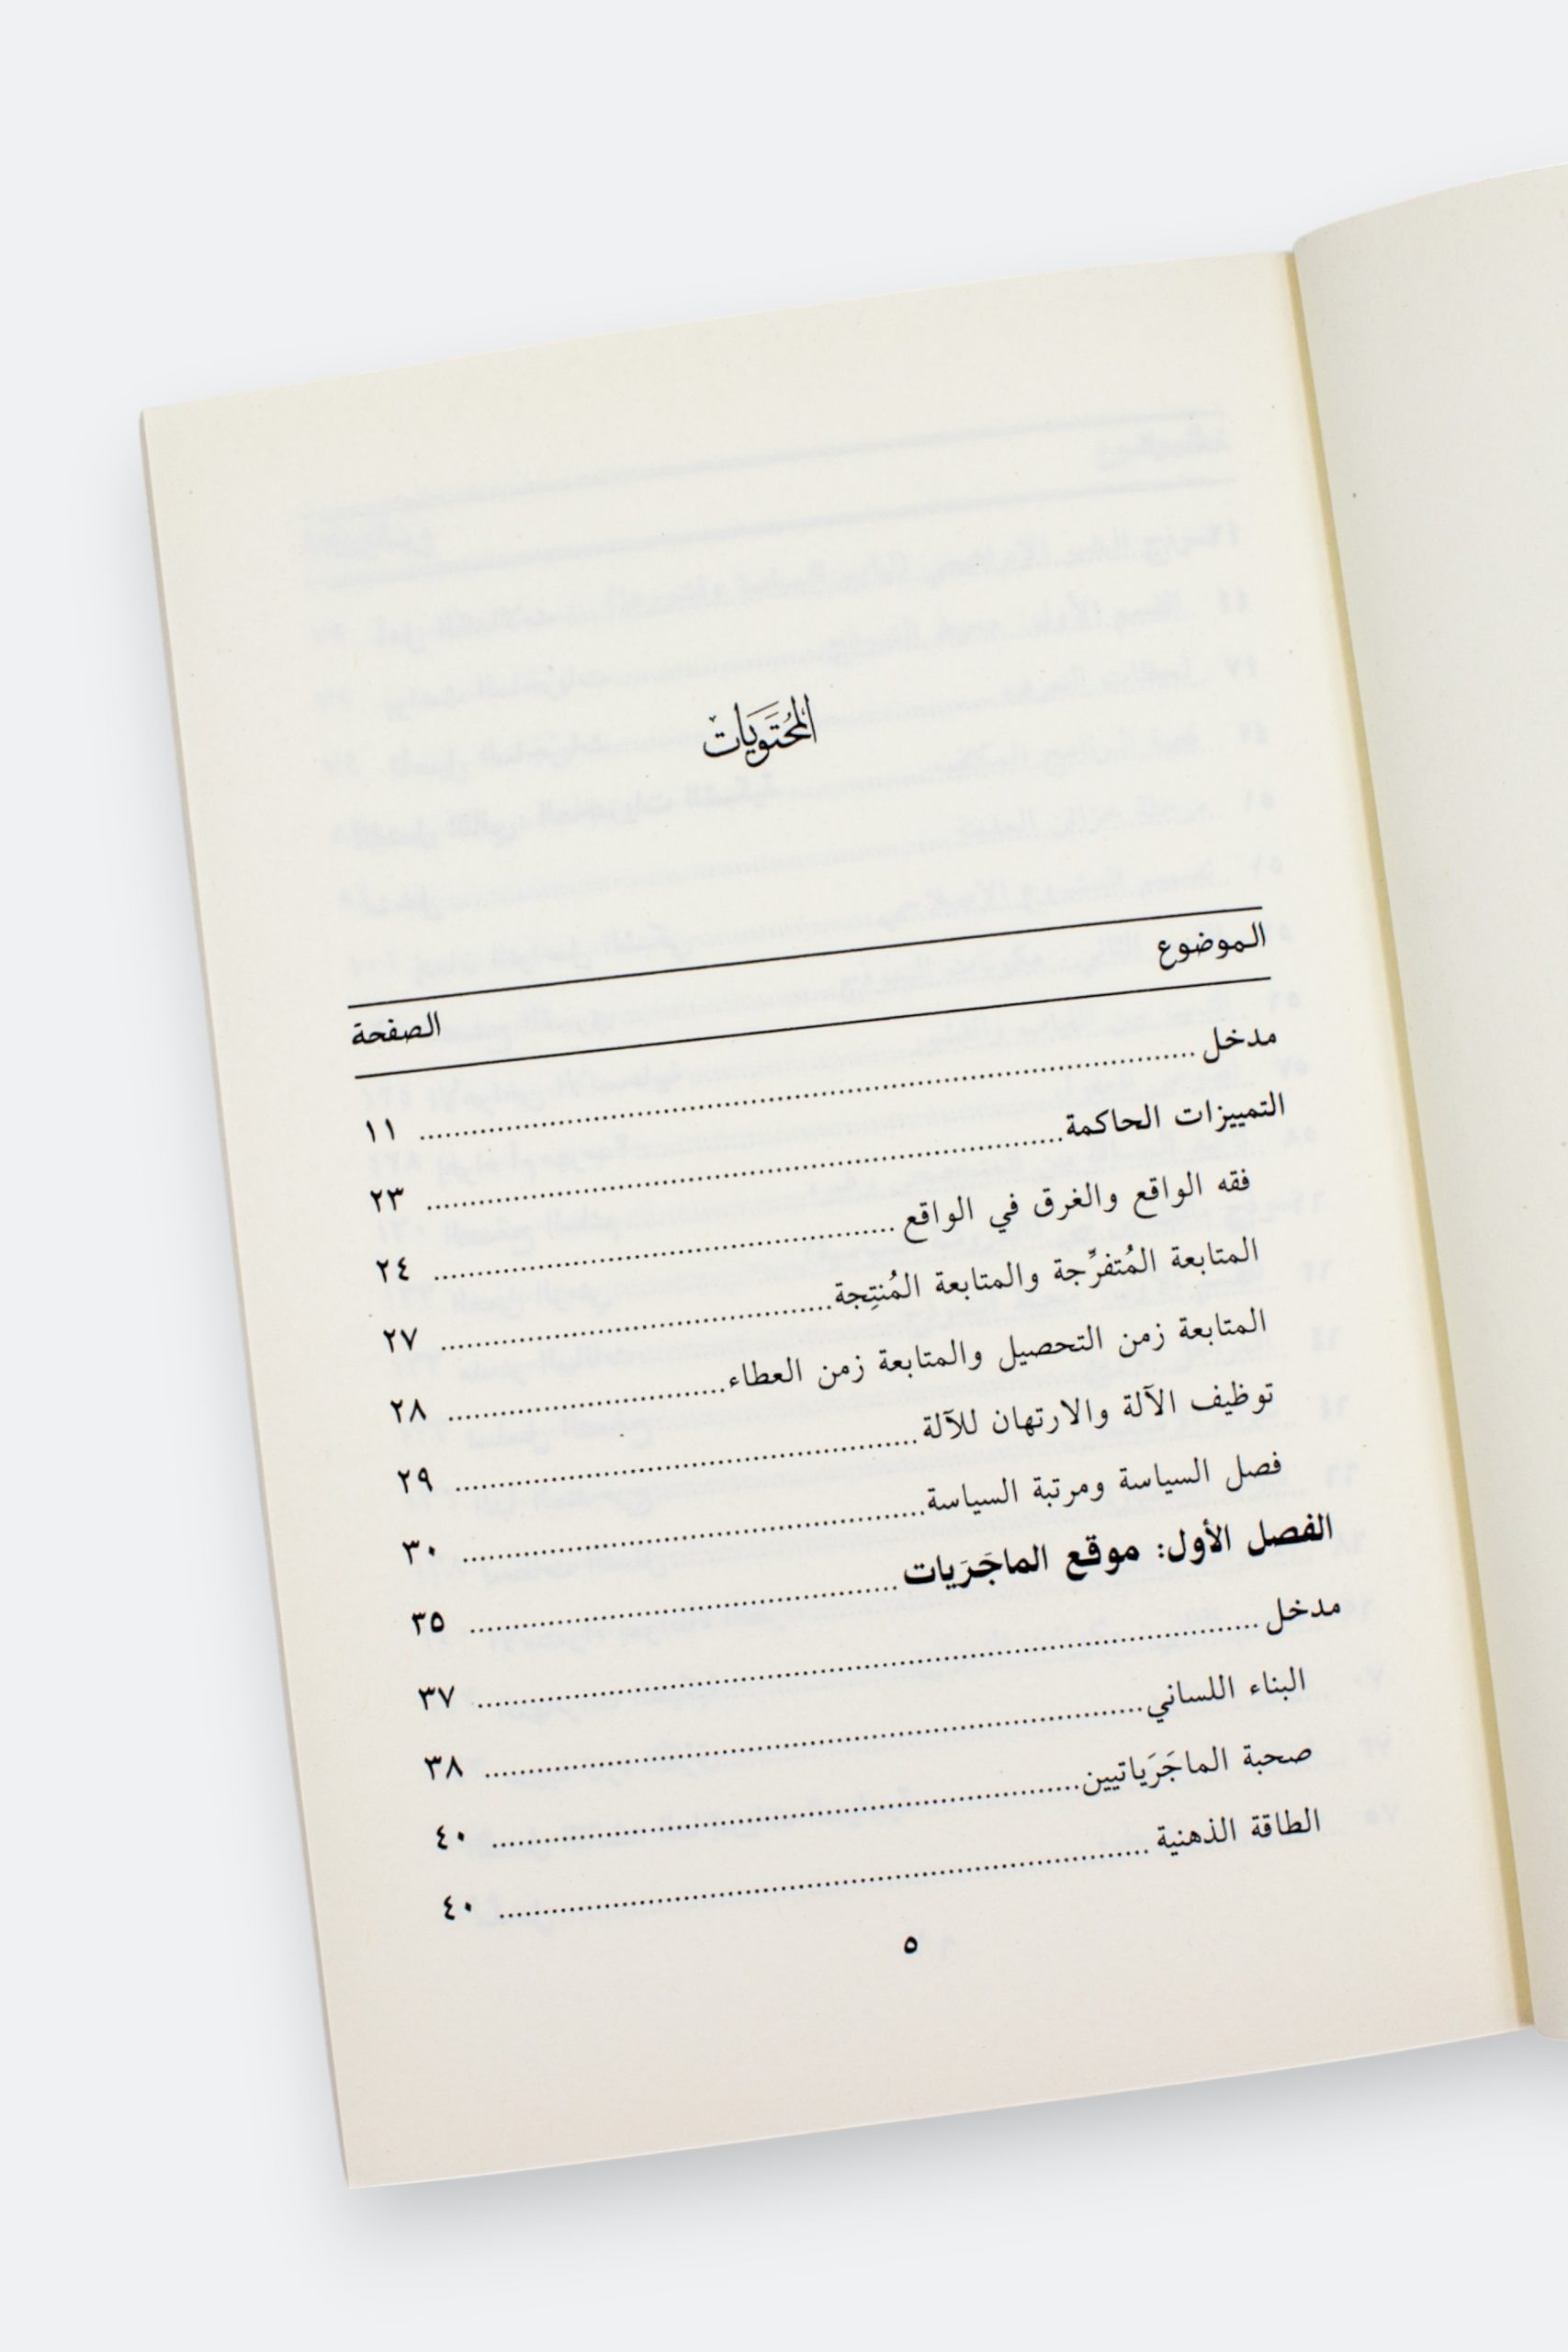 المُحْتَوَيَات
الموضوع الصفحة
مدخل ........ ١١
التمييزات الحاكمة ........ ٢٣
فقه الواقع والغرق في الواقع ........ ٢٤
المتابعة المُتفرِّجة والمتابعة المُنتِجة ........ ٢٧
المتابعة زمن التحصيل والمتابعة زمن العطاء ........ ٢٨
توظيف الآلة والارتهان للآلة ........ ٢٩
فصل السياسة ومرتبة السياسة ........ ٣٠
الفصل الأول: موقع الماجَرَيات ........ ٣٥
مدخل ........ ٣٧
البناء اللساني ........ ٣٨
صحبة الماجَرَياتيين ........ ٤٠
الطاقة الذهنية ........ ٤٠
٥